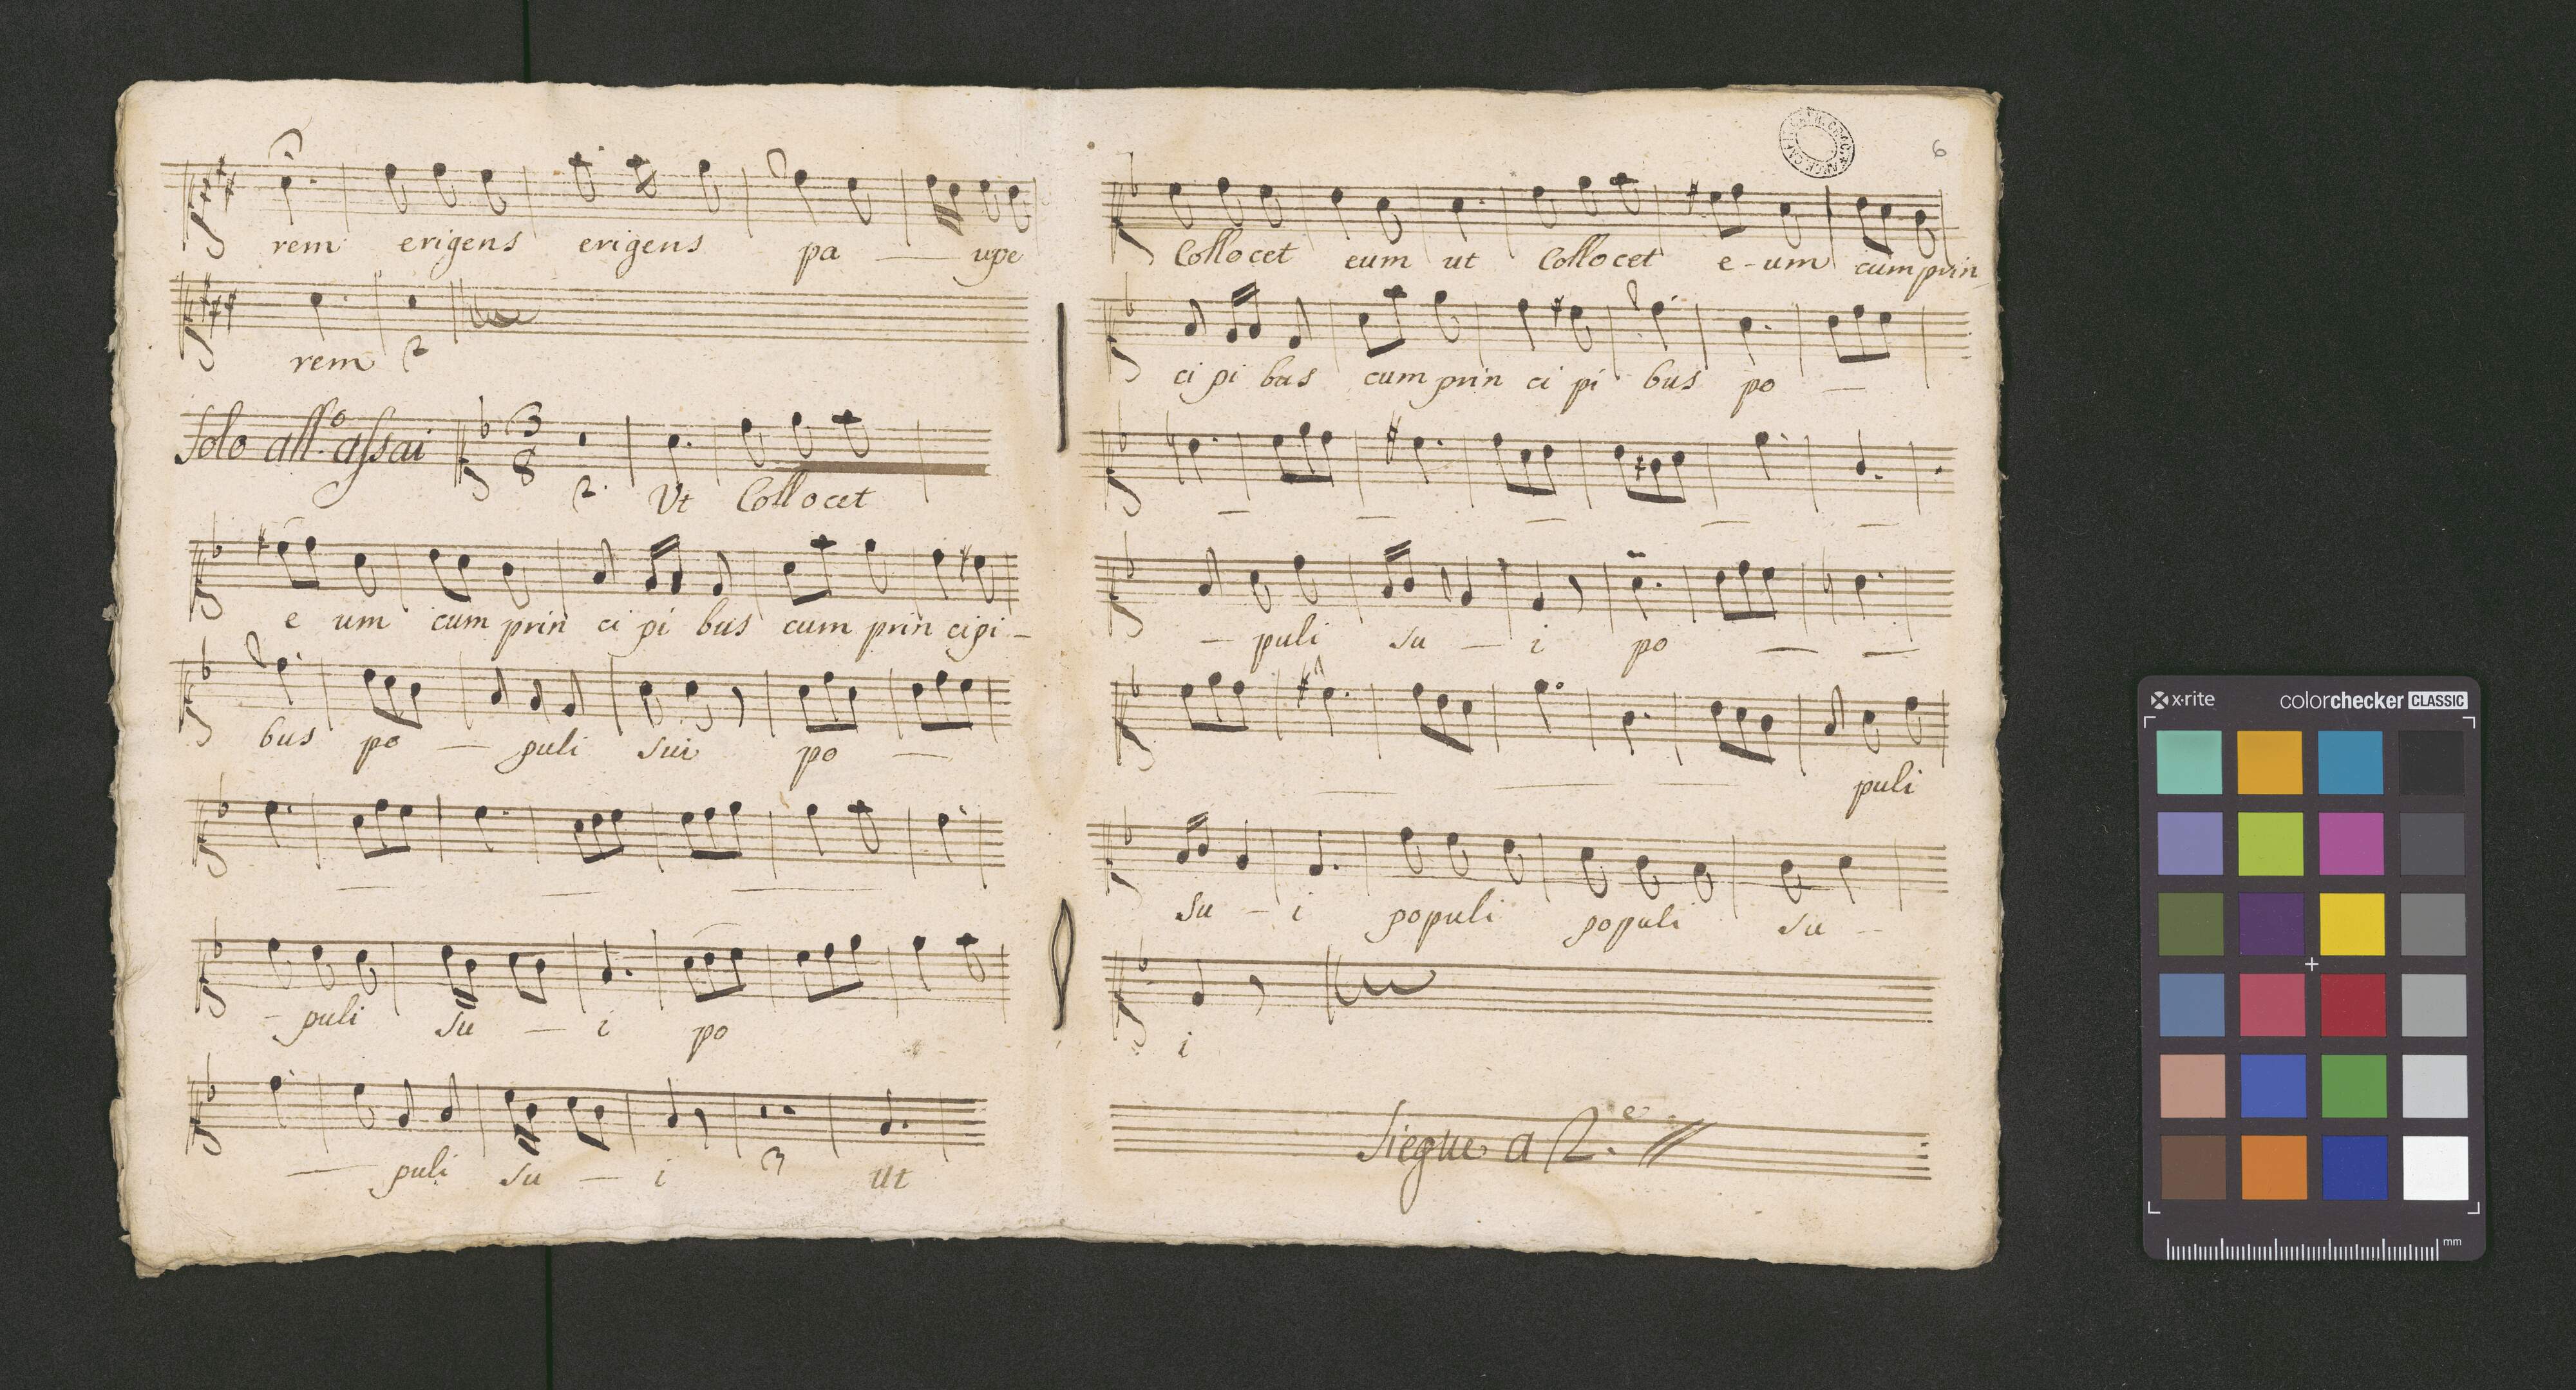 rem erigens erigens pa — upe
rem 2
Solo all.o assai 3 8 2. Ut Collocet
e um cum prin ci pi bus cum prin cipi -
bus po — puli sui po —
- puli su — i po
— puli su — i 3 Ut
6
Collocet eum ut Collocet e - um cum prin
ci pi bus cum prin ci pi bus po —
- puli su — i po — —
puli
su - i populi populi su -
i
Siegue a 2.e //
x-rite colorchecker CLASSIC
mm